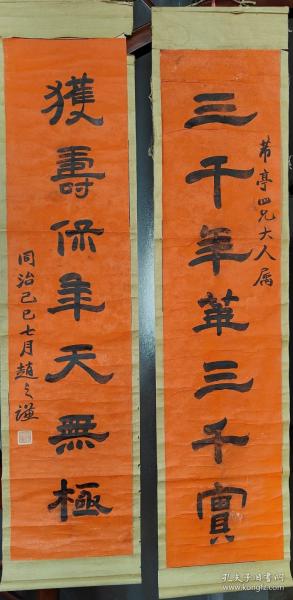 三千年華三千實
芾亭四兄大人屬
獲壽保年天無極
同治己巳七月趙之謙
孔夫子旧书网